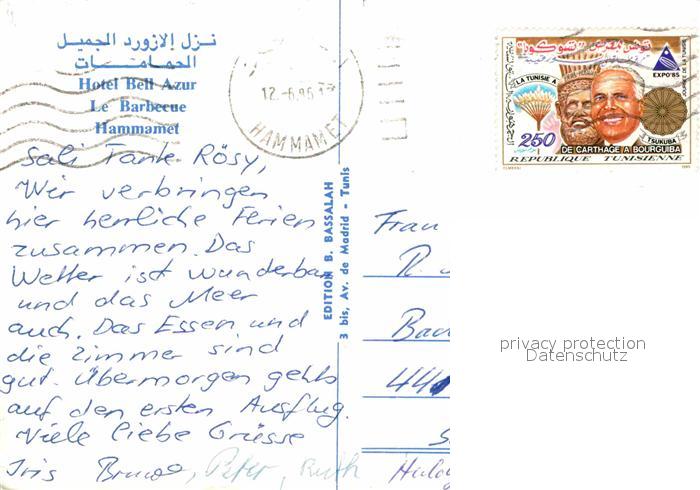 نزل الازورد الجميل
الحمامات
Hotel Bell Azur
Le Barbecue
Hammamet
12.-6.86
HAMMAMET
Sali Tante Rösy,
Wir verbringen
hier herrliche Ferien
zusammen. Das
Wetter ist wunderbar
und das Meer
auch. Das Essen und
die Zimmer sind
gut. Übermorgen gehts
auf den ersten Ausflug.
Viele liebe Grüsse
Iris Bruno, Peter, Ruth
EDITION B. BASSALAH
3 bis, Av. de Madrid - Tunis
EXPO'85
LA TUNISIE A
TSUKUBA
250
DE CARTHAGE A BOURGUIBA
REPUBLIQUE TUNISIENNE
Frau
R.
privacy protection
Datenschutz